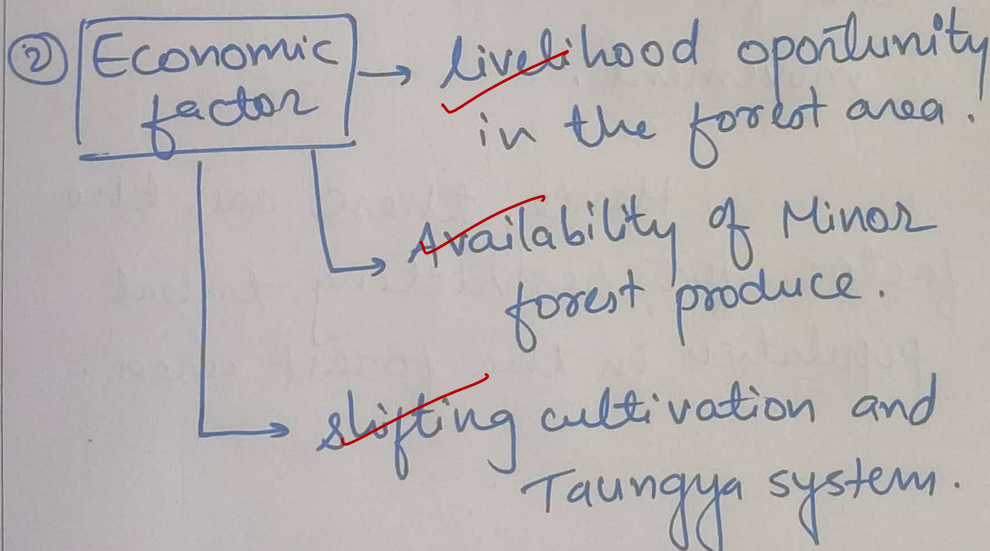 ② Economic factor → livelihood oportunity
in the forest area.
→ Availability of Minor
forest produce.
→ shifting cultivation and
Taungya system.